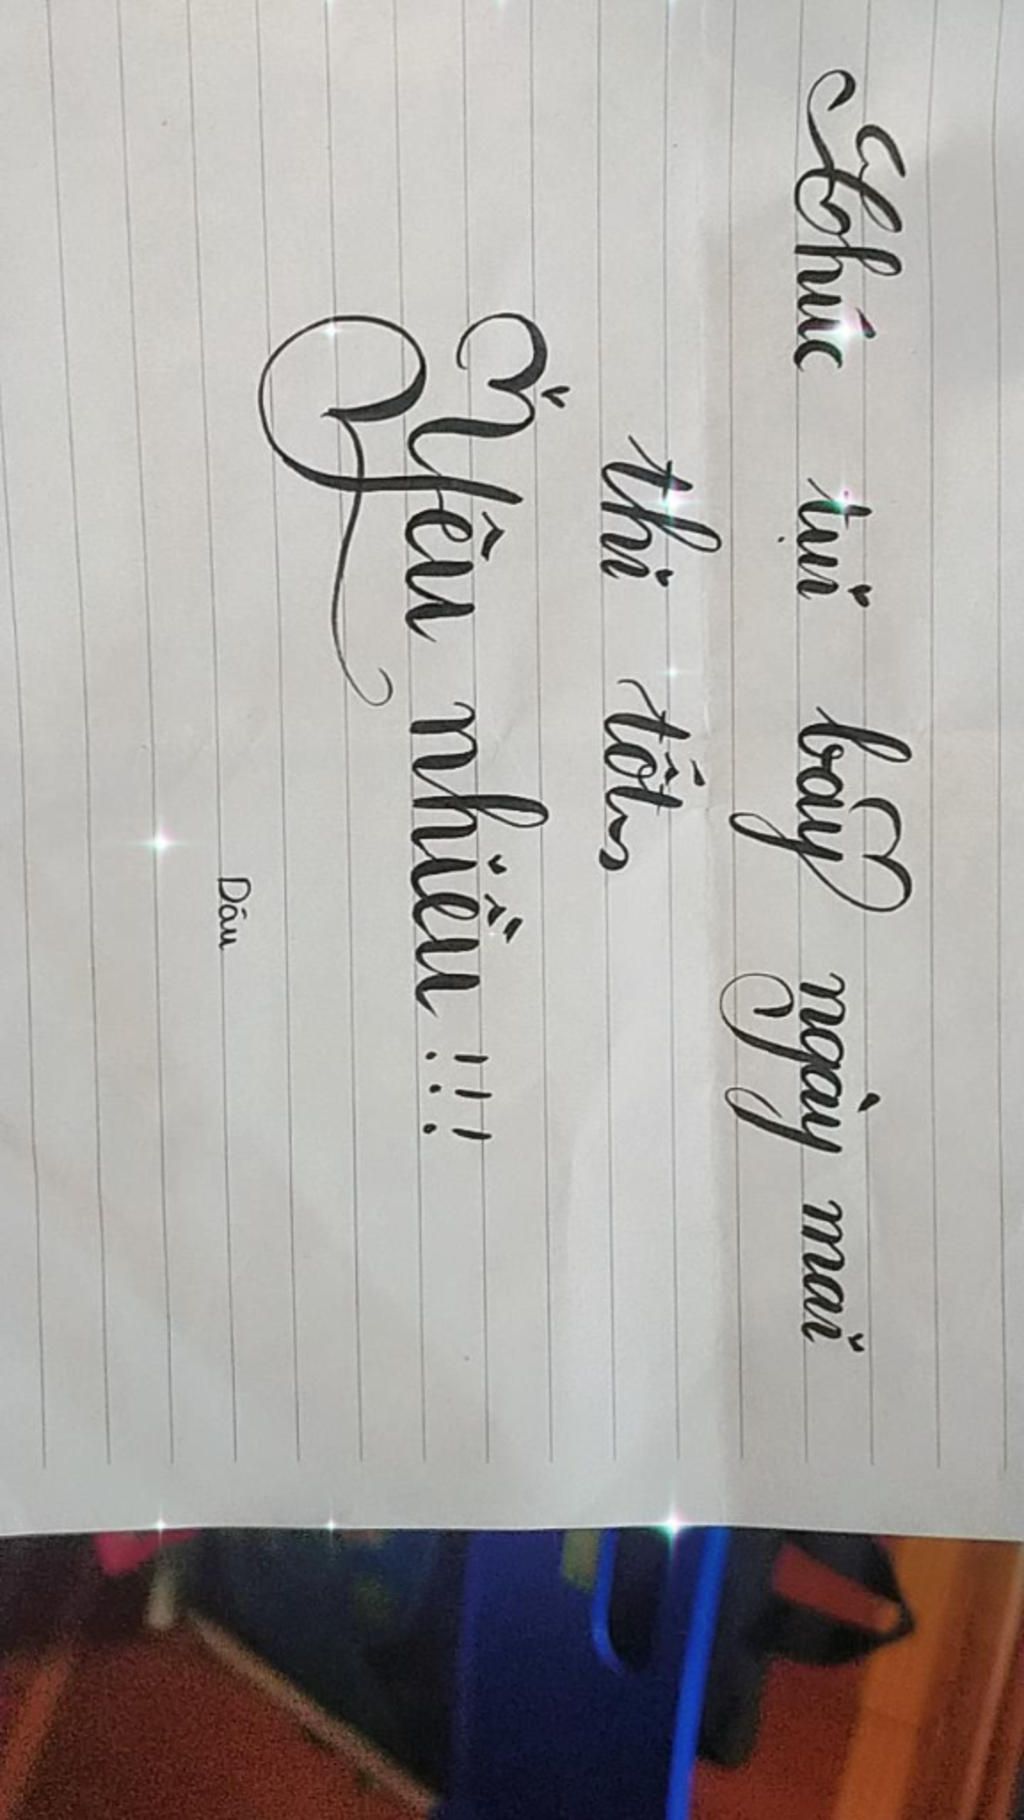 Chúc tụi bay ngày mai
thi tốt
Yêu nhiều !!!
Dâu